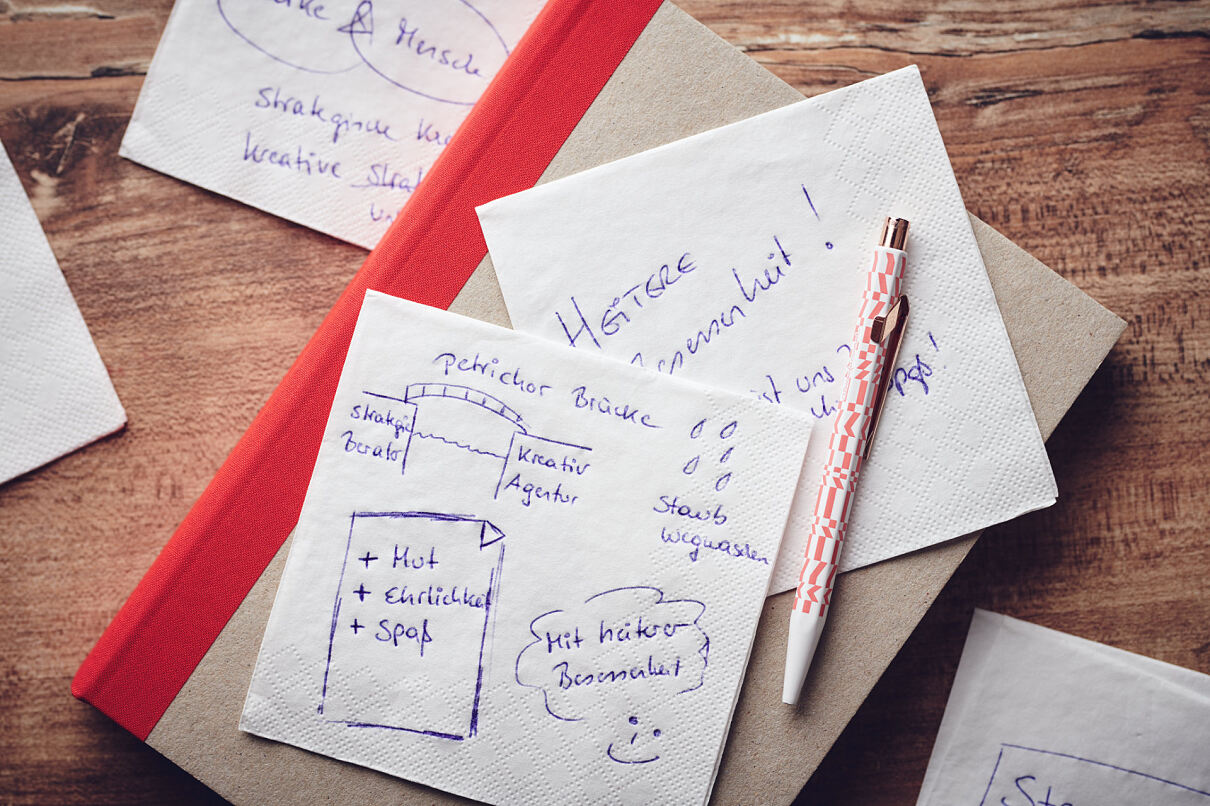 & Mensch
Strategische
Kreative
HEITERE
Besessenheit!
ist uns
petrichor Brücke
Strategie
Berater
Kreativ
Agentur
Staub
wegwaschen
+ Mut
+ Ehrlichkeit
+ Spaß
Mit heiterer
Besessenheit